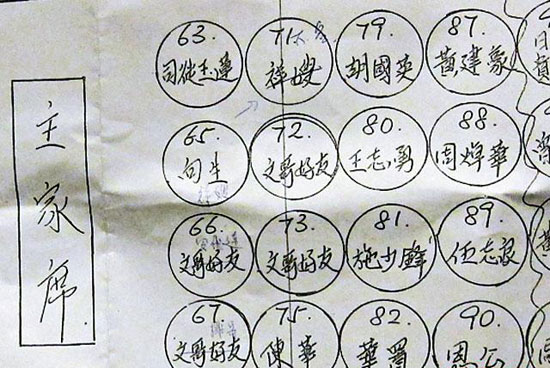 主家席
63.
司徒玉蓮
71.
祥嫂
79.
胡國英
87.
黃建豪
65.
向生
72.
文哥好友
80.
王志勇
88.
周焯華
66.
文哥好友
73.
文哥好友
81.
施少鋒
89.
任志良
67.
文哥好友
75.
陳華
82.
華置
90.
恩公